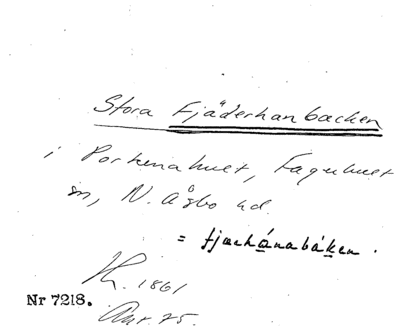 Stora Fjäderhanbacken
i Porkenahult, Fagerhult
sn, N. Åsbo hd.
= fjæhánabáken.
1861
Nr 7218.